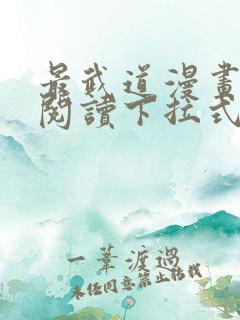 最武道漫畫
閱讀下拉式
一葦渡過
未經同意禁止轉載